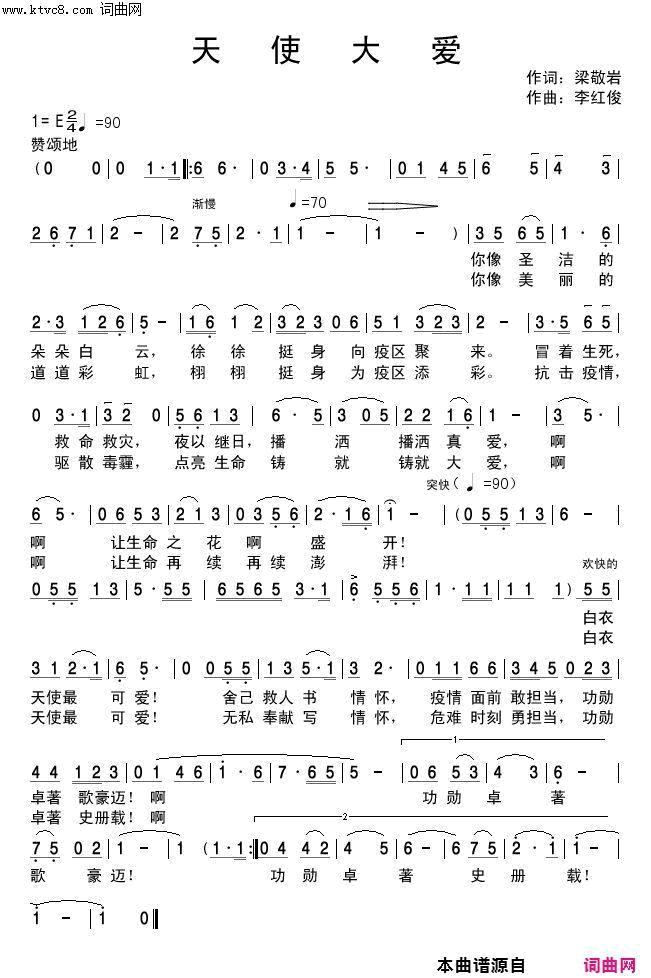 www.ktvc8.com 词曲网
天使大爱
作词：梁敬岩
作曲：李红俊
1=E 2/4 ♩=90
赞颂地
(0 0 | 0 1·1 |: 6 6· | 0 3·4 | 5 5· | 0 1 4 5 | 6 5 | 4 3 |
渐慢 ♩=70
2 6 7 1 | 2 - | 2 7 5 | 2· 1 | 1 - | 1 - ) | 3 5 6 5 | 1· 6 |
你像圣洁的
你像美丽的
2·3 1 2 6 | 5 - | 1 6 1 2 | 3 2 3 0 6 | 5 1 3 2 3 | 2 - | 3·5 6 5 |
朵朵白云，徐徐挺身向疫区聚来。冒着生死，
道道彩虹，栩栩挺身为疫区添彩。抗击疫情，
0 3·1 | 3 2 0 | 5 6 1 3 | 6· 5 | 3 0 5 | 2 2 1 6 | 1 - | 3 5· |
救命救灾，夜以继日，播洒播洒真爱，啊
驱散毒霾，点亮生命铸就铸就大爱，啊
突快(♩=90)
6 5· | 0 6 5 3 | 2 1 3 | 0 3 5 6 | 2·1 6 | 1 - | (0 5 5 1 3 | 6 - |
啊让生命之花啊盛开！
啊让生命再续再续澎湃！
欢快的
0 5 5 1 3 | 5·5 5 | 6 5 6 5 3·1 | 6 5 5 6 | 1·1 1 1 | 1 1 1 ) 5 5 |
白衣
白衣
3 1 2·1 | 6 5· | 0 0 5 5 | 1 3 5·1 | 3 2· | 0 1 1 6 6 | 3 4 5 0 2 3 |
天使最可爱！舍己救人书情怀，疫情面前敢担当，功勋
天使最可爱！无私奉献写情怀，危难时刻勇担当，功勋
1
4 4 1 2 3 | 0 1 4 6 | 1· 6 | 7·6 5 | 5 - | 0 6 5 3 | 4 3 | 6 - |
卓著歌豪迈！啊功勋卓著
卓著史册载！啊
2
7 5 0 2 | 1 - | 1 (1·1 :| 0 4 4 2 | 4 5 | 6 - | 6 7 5 | 2· 1 | 1 - |
歌豪迈！功勋卓著史册载！
1 - | 1 0 ‖
本曲谱源自 词曲网